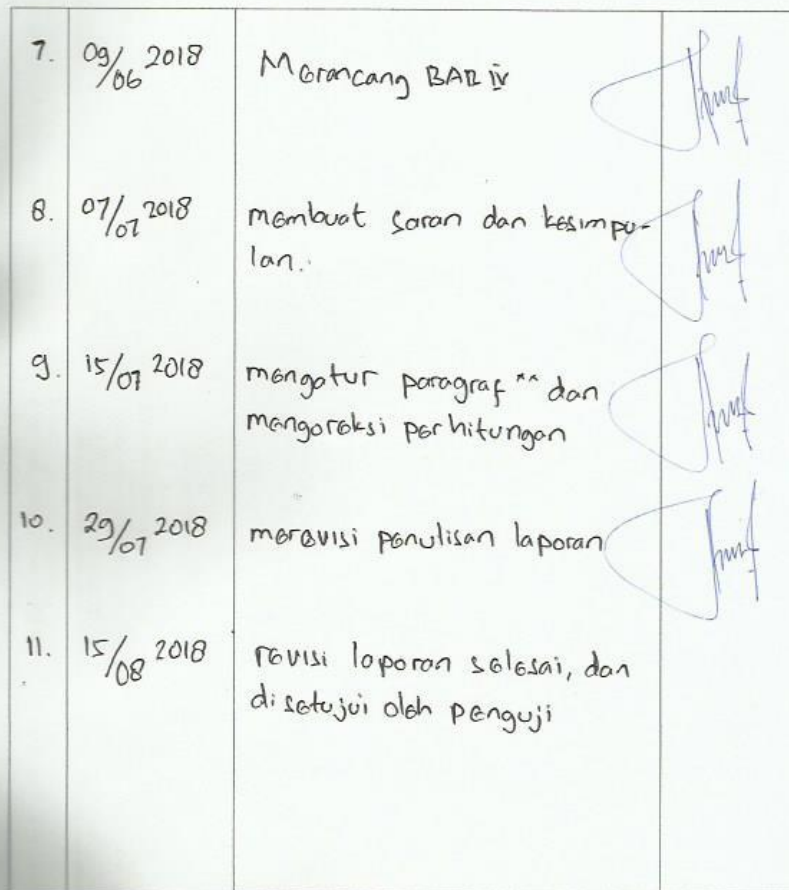 7. 09/06 2018 Merancang BAB IV
8. 07/07 2018 membuat saran dan kesimpu-
lan.
9. 15/07 2018 mengatur paragraf ^^ dan
mengoreksi perhitungan
10. 29/07 2018 merevisi penulisan laporan
11. 15/08 2018 revisi laporan selesai, dan
disetujui oleh penguji